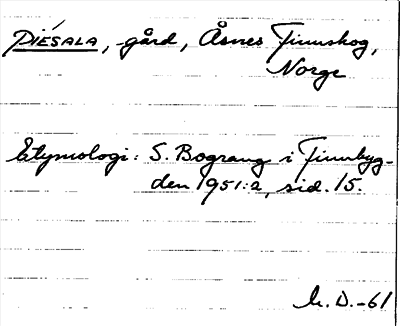 PIÉSALA, gård, Åsnes Finnskog,
Norge
Etymologi: S. Bograng i Finnbyg-
den 1951:2, sid. 15.
h. D. -61